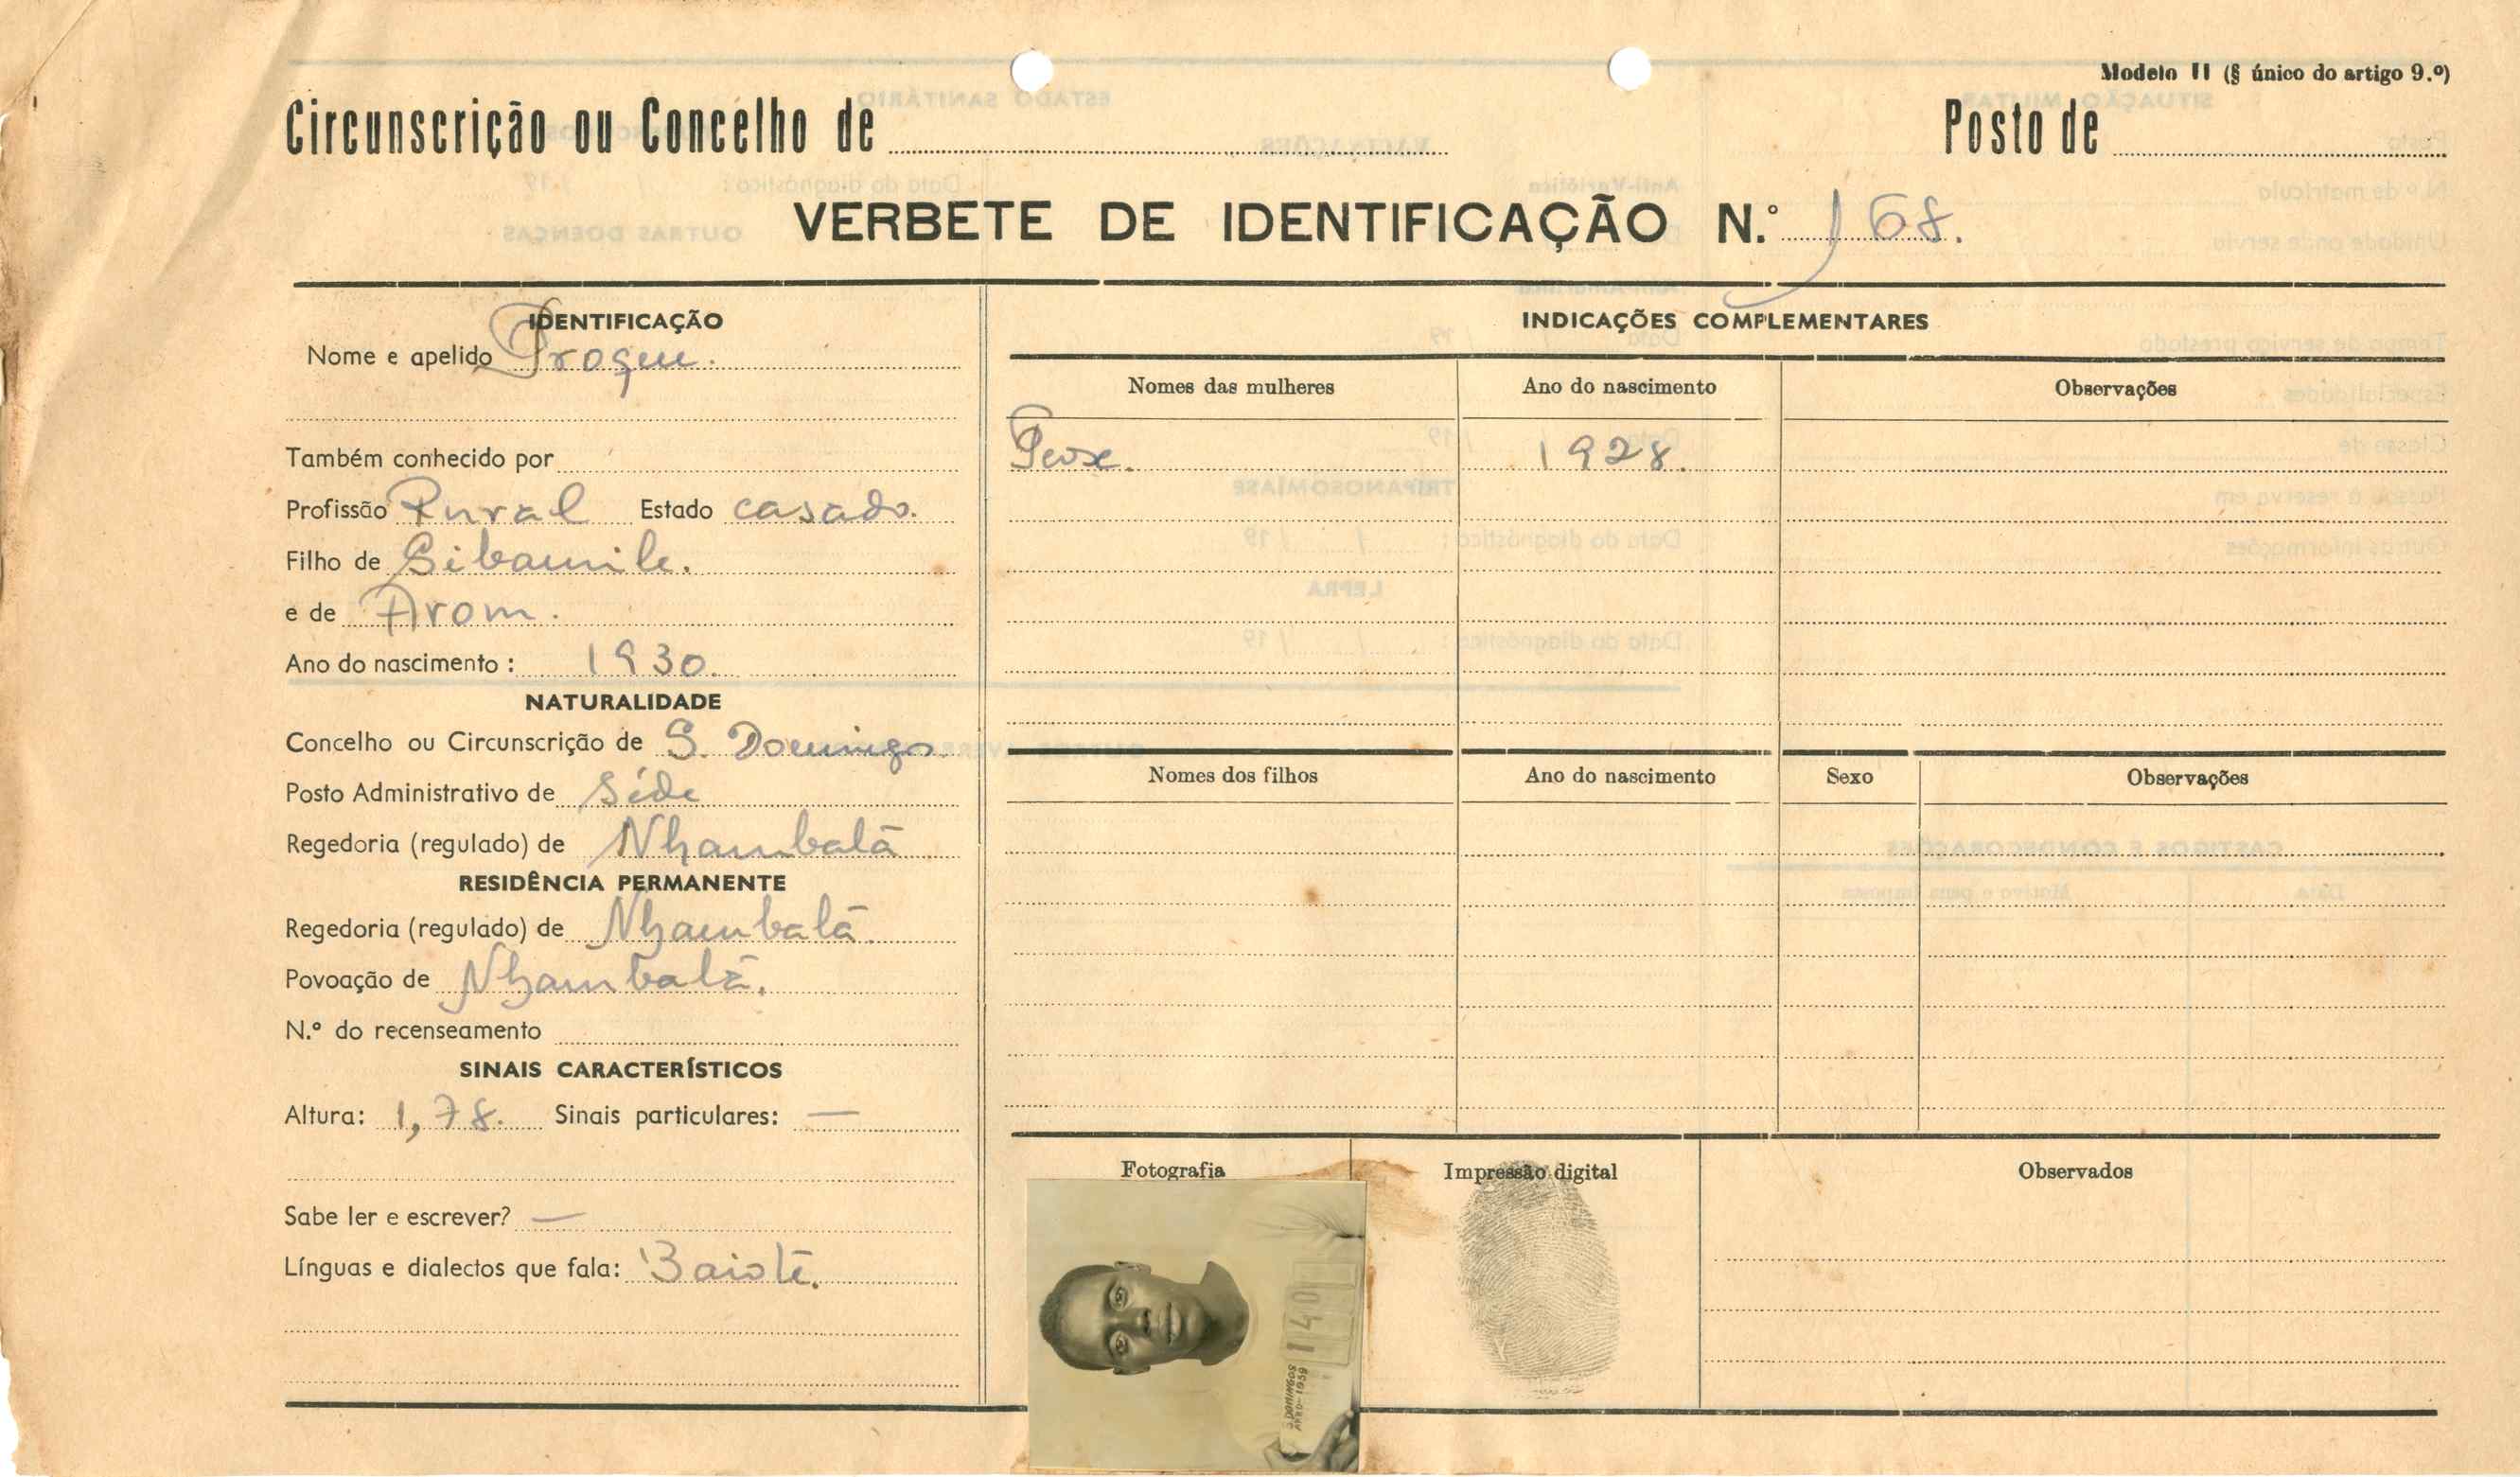 Modelo II (§ único do artigo 9.º)
Circunscrição ou Concelho de
Posto de
VERBETE DE IDENTIFICAÇÃO N.º 168.
IDENTIFICAÇÃO
Nome e apelido
Também conhecido por
Profissão Rural Estado casado.
Filho de
e de Arom.
Ano do nascimento: 1930.
NATURALIDADE
Concelho ou Circunscrição de S. Domingos
Posto Administrativo de Séde
Regedoria (regulado) de Nhambalã
RESIDÊNCIA PERMANENTE
Regedoria (regulado) de Nhambalã
Povoação de Nhambalã.
N.º do recenseamento
SINAIS CARACTERÍSTICOS
Altura: 1,78. Sinais particulares: —
Sabe ler e escrever? —
Línguas e dialectos que fala: Baiote.
INDICAÇÕES COMPLEMENTARES
Nomes das mulheres Ano do nascimento Observações
1928.
Nomes dos filhos Ano do nascimento Sexo Observações
Fotografia Impressão digital Observados
140
S. DOMINGOS
1959